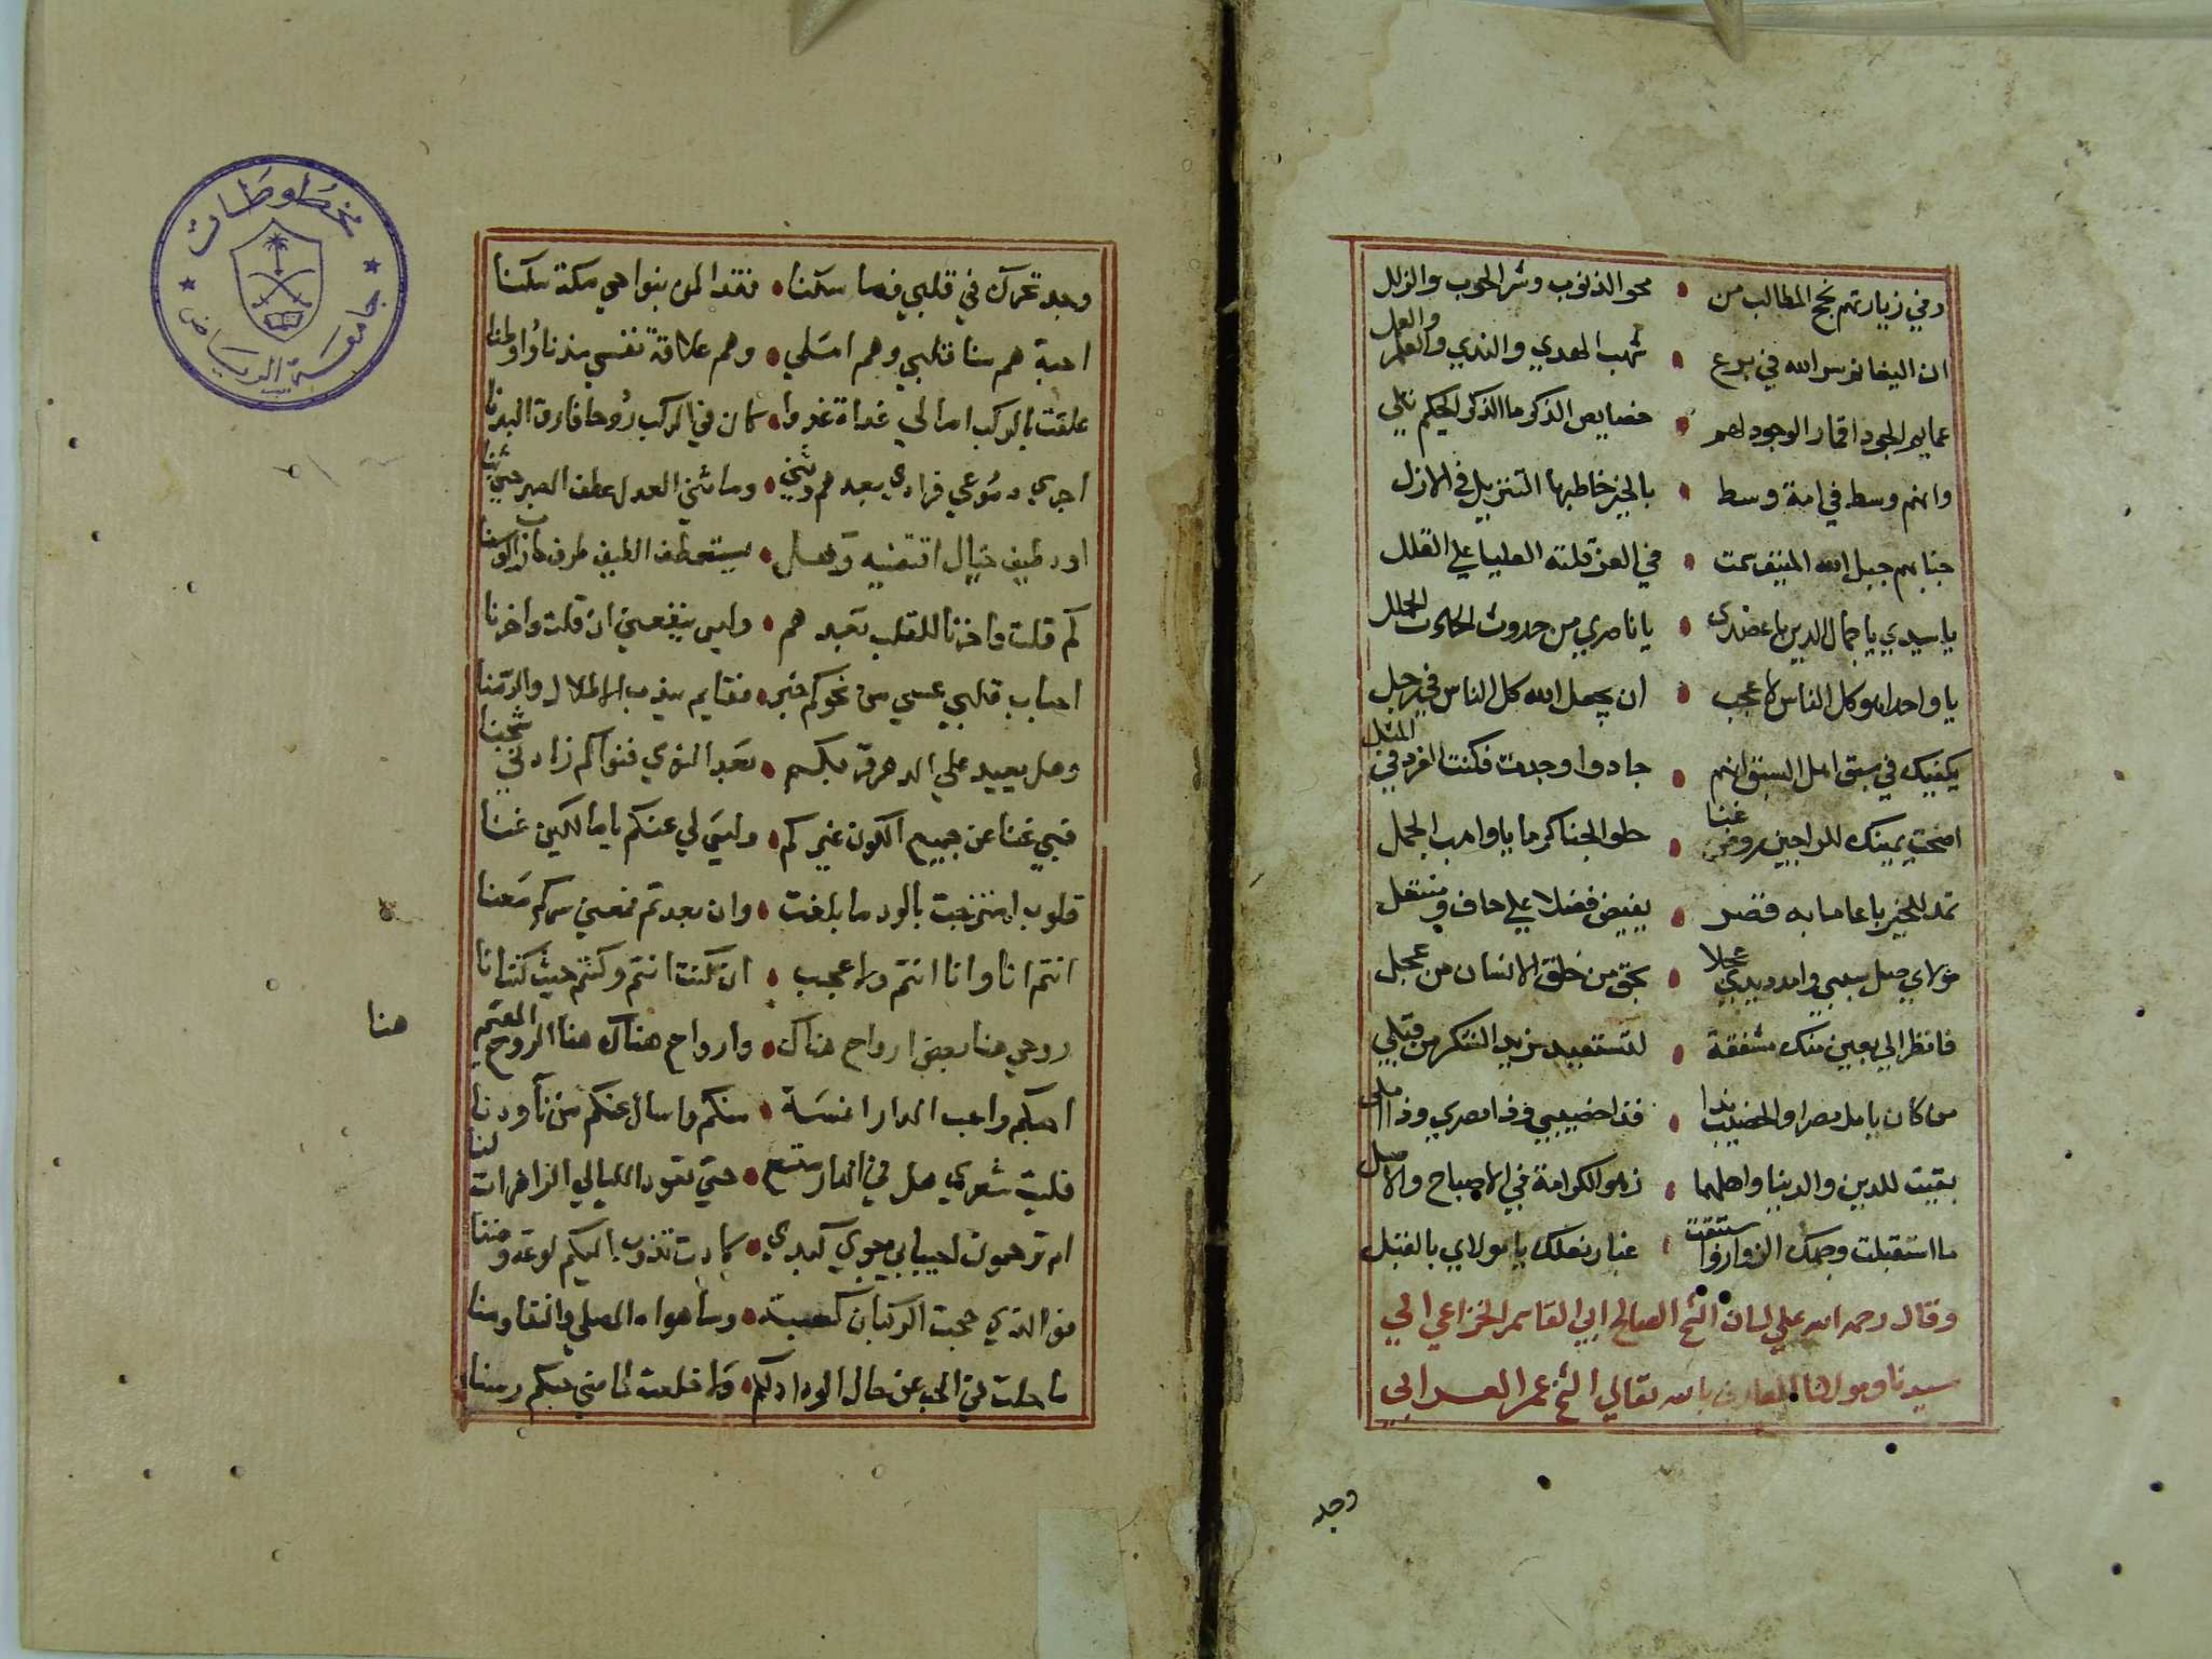 وفي زيارتهم نجح المطالب من • محو الذنوب وشر الحوب والزلل
ان اليفا نرس الله في يرع • شهب الهدي والندي والعلم والعمل
عمايم الجود اقمار الوجود لهم • خصايص الذكر ما الذكر الحكيم تلي
وانهم وسط في امة وسط • بالخير خاطبها التنزيل في الازل
جنابهم جبل الله المنيف سمت • في العز قلته العليا علي القلل
يا سيدي يا جمال الدين يا عضدي • يا ناصري من حدوث الحادث الجلل
يا واحدا هو كل الناس لا عجب • ان يجعل الله كل الناس في رجل
يكفيك في سبق اهل السبق انهم • جادوا وجدت فكنت الفرد في المثل
اضحت يمينك للراجين روض غنا • حلو الجنا كرما يا واهب الجمل
تمد للخير باعا ما به قصر • يفيض فضلا علي حاف ومنتعل
مولاي صل سببي وامدد يدي عجلا • بحق من خلق الانسان من عجل
فانظر الي بعين منك مشفقة • لتستفيد مزيد الشكر من قبلي
من كان يامل مصرا والخصيب ندا • فذا خصيبي وذا مصري وذا املي
بقيت للدين والدنيا واهلها • زهو الكرامة في الاصباح والاصل
ما استقبلت وجهك الزوار واستبقت • غبار نعلك يا مولاي بالقبل
وقال رحمه الله علي لسان الشيخ الصالح ابي القاسم الخزاعي الي
سيدنا ومولانا العارف بالله تعالي الشيخ عمر العرابي
وجد
وجد تحرك في قلبي فما سكنا • فقد المن بنواحي مكة سكنا
احبة هم منا قلبي وهم املي • وهم علاقة نفسي مذ ناوا وطنا
علقت بالركب امالي غداة غدوا • كان في الركب روحا فارق البدنا
اجري دموعي فرادي بعدهم وثني • وما ثني العدل عطف الصبر حين ثنا
اود طيف خيال اقتفيه وهل • يستعطف الطيف طرف حارب الوسنا
كم قلت واحزنا للقلب بعدهم • وليس ينفعني ان قلت واحزنا
احباب قلبي عسي من نحوكم خبر • فقايم يندب الاطلال والدمنا
وهل يعيد علي الدهر قربكم • بعد النوي فنواكم زادني شجنا
فبي غنا عن جميع الكون غيركم • وليس لي عنكم يا مالكين غنا
قلوب امتزجت بالود ما بلغت • وان بعدتم فمعني سركم معنا
انتم انا وانا انتم ولا عجب • ان كنت انتم وكنتم حيث كنت انا
روحي هنا بعض ارواح هناك • وارواح هناك هنا الروح المقيم
هنا
احبكم واحب الدار انسة • منكم واسال عنكم من نآ ودنا
فليت شعري هل في الدار متسع • حتي تعود الليالي الزاهرات لنا
ام ترحمون لحبيابي جوي كبدي • كادت تذوب اليكم لوعة وضنا
فو الذي حجت الركبان كعبته • وما هواه المصلي والنقا ومنا
ما حلت في الحب عن حال الوداد لكم • ولا خلعت لما مني حبكم رسنا
مخطوطات
جامعة الرياض